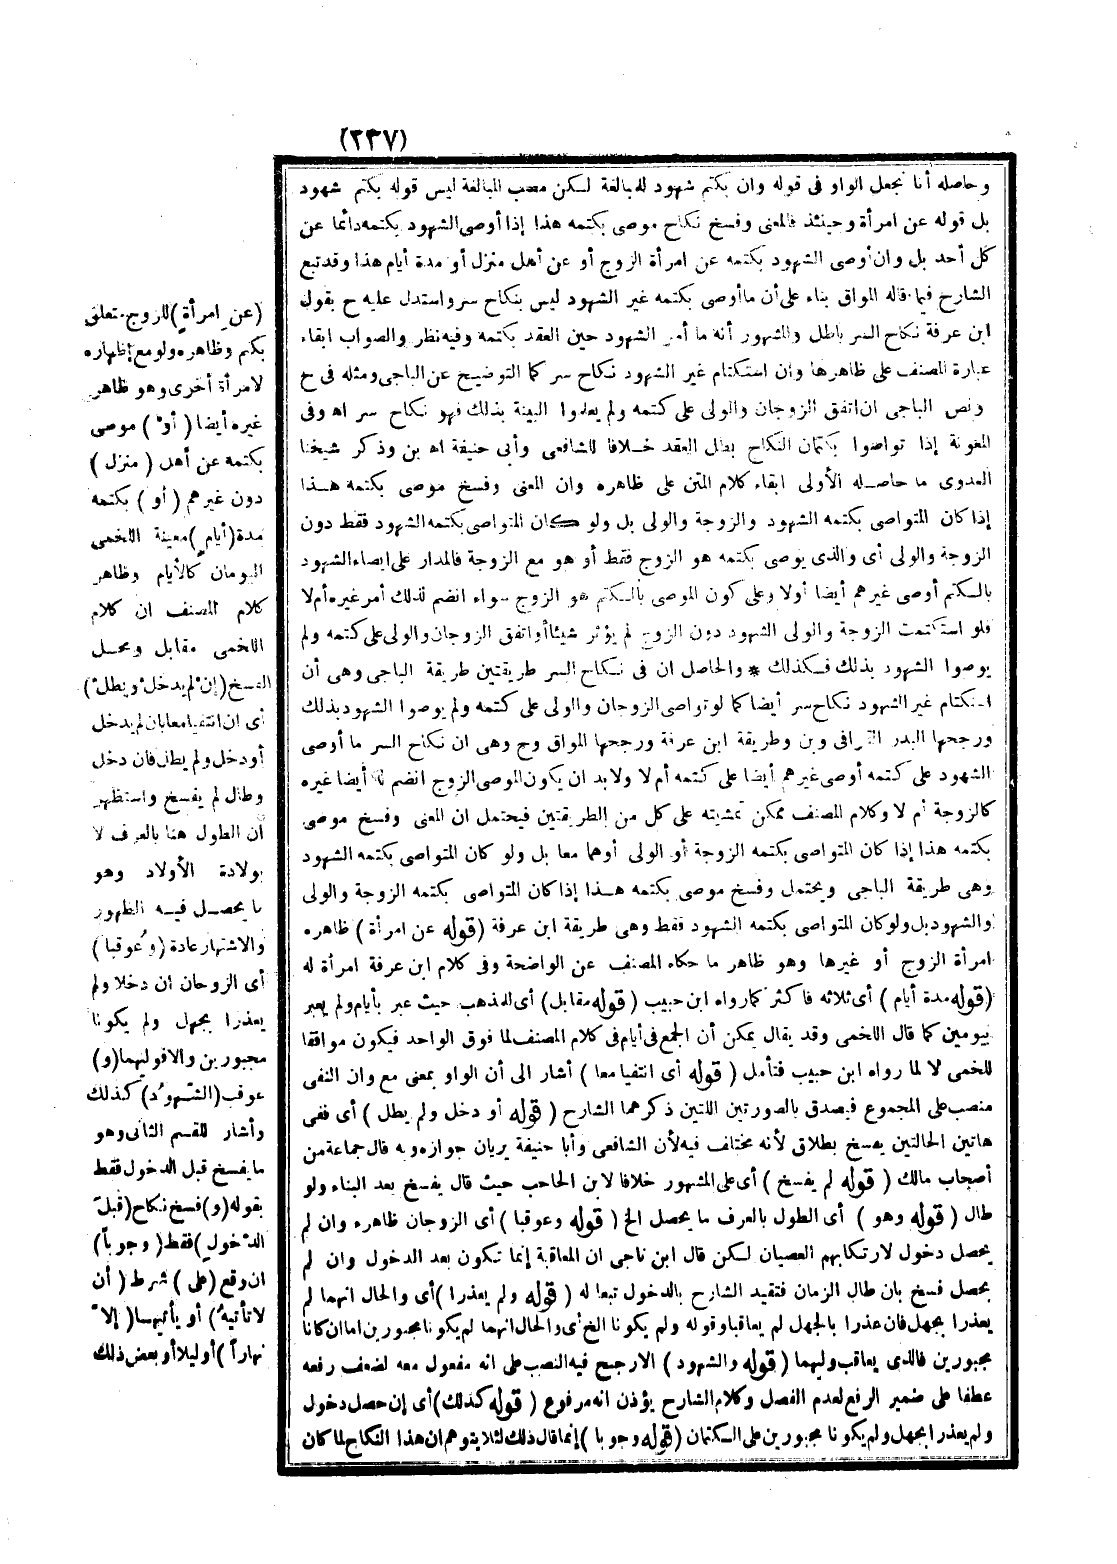 (٢٣٧)
وحاصله أنا نجعل الواو فى قوله وان بكتم شهود للمبالغة لكن مصب المبالغة ليس قوله بكتم شهود
بل قوله عن امرأة وحينئذ فالمعنى وفسخ نكاح موصى بكتمه هذا إذا أوصى الشهود بكتمه دائما عن
كل أحد بل وان أوصى الشهود بكتمه عن امرأة الزوج أو عن أهل منزل أو مدة أيام هذا وقد تبع
الشارح فيما قاله المواق بناء على أن ما أوصى بكتمه غير الشهود ليس بنكاح سر واستدل عليه ح بقول
ابن عرفة نكاح السر باطل والمشهور أنه ما أمر الشهود حين العقد بكتمه وفيه نظر والصواب ابقاء
عبارة المصنف على ظاهرها وان استكتام غير الشهود نكاح سر كما التوضيح عن الباجى ومثله فى ح
ونص الباجى ان اتفق الزوجان والولى على كتمه ولم يعلموا البينة بذلك فهو نكاح سر اه وفى
المعونة إذا تواصوا بكتمان النكاح بطل العقد خلافا للشافعى وأبى حنيفة اه بن وذكر شيخنا
العدوى ما حاصله الأولى ابقاء كلام المتن على ظاهره وان المعنى وفسخ موصى بكتمه هذا
إذا كان المتواصى بكتمه الشهود والزوجة والولى بل ولو كان المتواصى بكتمه الشهود فقط دون
الزوجة والولى أى والذى يوصى بكتمه هو الزوج فقط أو هو مع الزوجة فالمدار على ايصاء الشهود
بالكتم أوصى غيرهم أيضا أولا وعلى كون الموصى بالكتم هو الزوج سواء انضم لذلك أمر غيره أم لا
فلو استكتمت الزوجة والولى الشهود دون الزوج لم يؤثر شيئا أو اتفق الزوجان والولى على كتمه ولم
يوصوا الشهود بذلك فكذلك * والحاصل ان فى نكاح السر طريقتين طريقة الباجى وهى أن
استكتام غير الشهود نكاح سر أيضا كما لو تواصى الزوجان والولى على كتمه ولم يوصوا الشهود بذلك
ورجحها البدر القرافى وبن وطريقة ابن عرفة ورجحها المواق وح وهى ان نكاح السر ما أوصى
الشهود على كتمه أوصى غيرهم أيضا على كتمه أم لا ولا بد ان يكون الموصى الزوج انضم له أيضا غيره
كالزوجة أم لا وكلام المصنف ممكن تمشيته على كل من الطريقتين فيحتمل ان المعنى وفسخ موصى
بكتمه هذا إذا كان المتواصى بكتمه الزوجة أو الولى أوهما معا بل ولو كان المتواصى بكتمه الشهود
وهى طريقة الباجى ويحتمل وفسخ موصى بكتمه هذا إذا كان المتواصى بكتمه الزوجة والولى
والشهود بل ولو كان المتواصى بكتمه الشهود فقط وهى طريقة ابن عرفة (قوله عن امرأة) ظاهره
امرأة الزوج أو غيرها وهو ظاهر ما حكاه المصنف عن الواضحة وفى كلام ابن عرفة امرأة له
(قوله مدة أيام) أى ثلاثه فاكثر كما رواه ابن حبيب (قوله مقابل) أى المذهب حيث عبر بأيام ولم يعبر
بيومين كما قال اللخمى وقد يقال يمكن أن الجمع فى أيام فى كلام المصنف لما فوق الواحد فيكون موافقا
للخمى لا لما رواه ابن حبيب فتأمل (قوله أى انتفيا معا) أشار الى أن الواو بمعنى مع وان النفى
منصب على المجموع فيصدق بالصورتين اللتين ذكرهما الشارح (قوله أو دخل ولم يطل) أى ففى
هاتين الحالتين يفسخ بطلاق لأنه مختلف فيه لأن الشافعى وأبا حنيفة يريان جوازه وبه قال جماعة من
أصحاب مالك (قوله لم يفسخ) أى على المشهور خلافا لابن الحاجب حيث قال يفسخ بعد البناء ولو
طال (قوله وهو) أى الطول بالعرف ما يحصل الخ (قوله وعوقبا) أى الزوجان ظاهره وان لم
يحصل دخول لارتكابهم العصيان لكن قال ابن ناجى ان المعاقبة إنما تكون بعد الدخول وان لم
يحصل فسخ بان طال الزمان فتقيد الشارح بالدخول تبعا له (قوله ولم يعذرا) أى والحال انهما لم
يعذرا بجهل فان عذرا بالجهل لم يعاقبا وقوله ولم يكونا الخ أى والحال انهما لم يكونا مجبورين اما ان كانا
مجبورين فالذى يعاقب وليهما (قوله والشهود) الارجح فيه النصب على انه مفعول معه لضعف رفعه
عطفا على ضمير الرفع لعدم الفصل وكلام الشارح يؤذن انه مرفوع (قوله كذلك) أى إن حصل دخول
ولم يعذرا بجهل ولم يكونا مجبورين على الكتمان (قوله وجوبا) إنما قال ذلك لئلا يتوهم ان هذا النكاح لما كان
(عن امرأة) للزوج متعلق
بكتم وظاهره ولو مع إظهاره
لامرأة أخرى وهو ظاهر
غيره أيضا (أو) موصى
بكتمه عن أهل (منزل)
دون غيرهم (أو) بكتمه
مدة (أيام) معينة اللخمى
اليومان كالأيام وظاهر
كلام المصنف ان كلام
اللخمى مقابل ومحل
الفسخ (إن لم يدخل ويطل)
أى ان انتفيا معا بان لم يدخل
أو دخل ولم يطل فان دخل
وطال لم يفسخ واستظهر
أن الطول هنا بالعرف لا
بولادة الأولاد وهو
ما يحصل فيه الظهور
والاشتهار عادة (وعوقبا)
أى الزوجان ان دخلا ولم
يعذرا بجهل ولم يكونا
مجبورين والا فوليهما (و)
عوقب (الشهود) كذلك
وأشار للقسم الثانى وهو
ما يفسخ قبل الدخول فقط
بقوله (و) فسخ نكاح (قبل
الدخول) فقط (وجوبا)
ان وقع (على) شرط (أن
لا تأتيه) أو يأتيها (إلا
نهارا) أو ليلا أو بعض ذلك